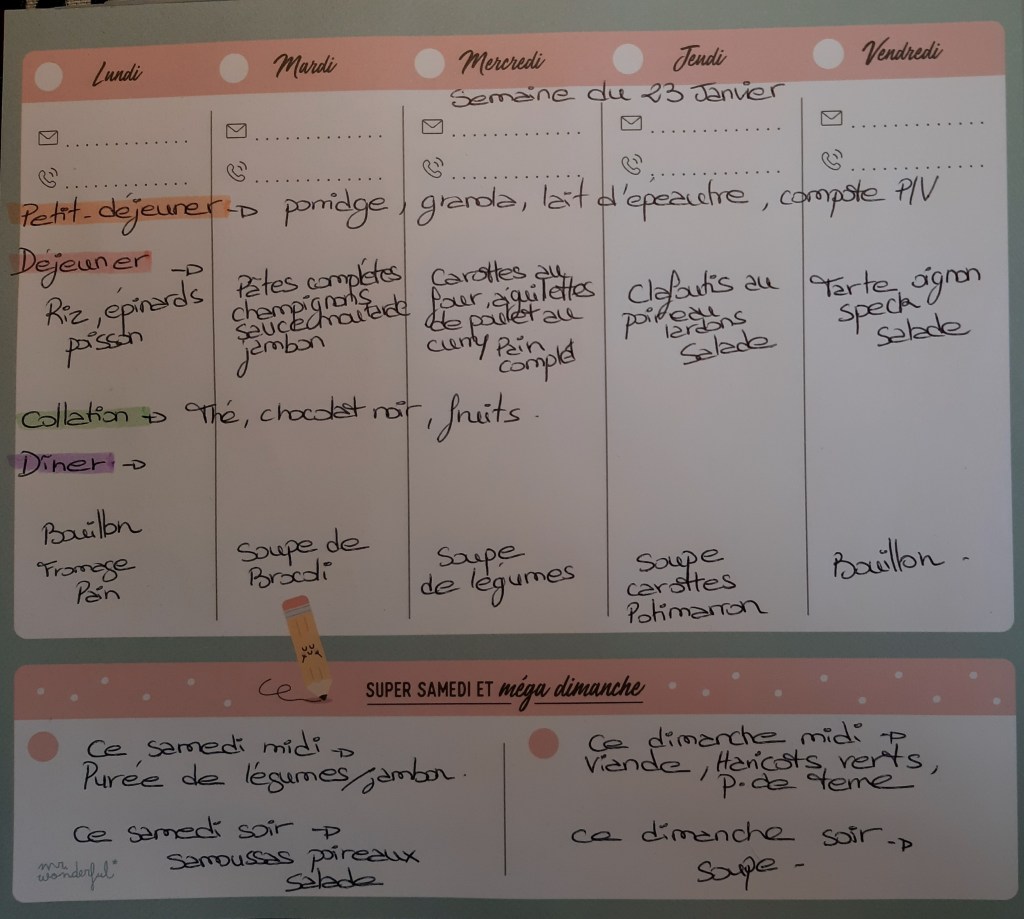 Lundi Mardi Mercredi Jeudi Vendredi
Semaine du 23 Janvier
Petit-déjeuner → porridge, granola, lait d'épeautre, compote P/V
Déjeuner →
Riz, épinards
poisson
Pâtes complètes
champignons
sauce moutarde
jambon
Carottes au
four, aiguilettes
de poulet au
curry Pain
complet
Clafoutis au
poireau
lardons
Salade
Tarte oignon
speck
Salade
Collation → Thé, chocolat noir, fruits.
Dîner →
Bouillon
Fromage
Pain
Soupe de
Brocoli
Soupe
de légumes
Soupe
carottes
Potimarron
Bouillon -
Ce SUPER SAMEDI ET méga dimanche
Ce samedi midi →
Purée de légumes/jambon.
Ce samedi soir →
Samoussas poireaux
Salade
mr
wonderful*
Ce dimanche midi →
Viande, Haricots verts,
P. de terre
Ce dimanche soir →
Soupe -